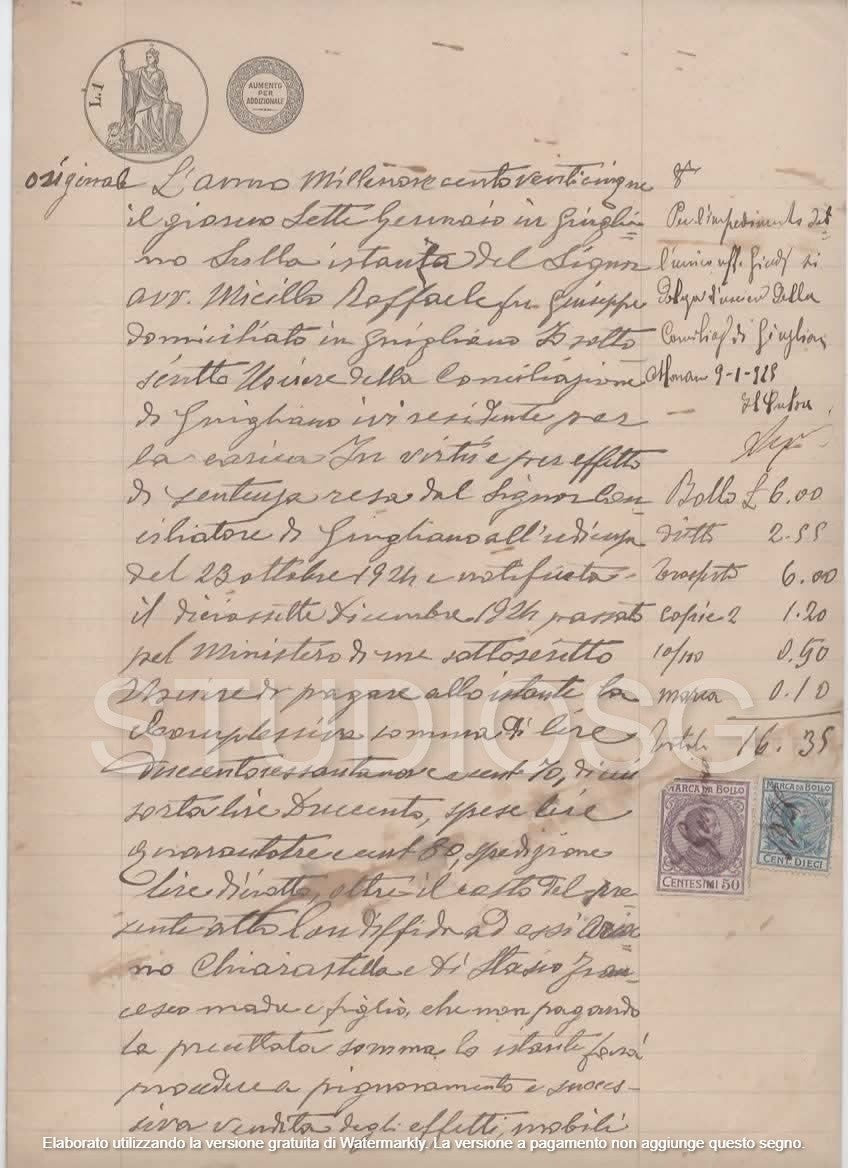 L.1
AUMENTO
PER
ADDIZIONALE
originale L'anno Millenovecentoventicinque
il giorno Sette Gennaio in Giuglia=
no Sulla istanza del Signor
avv. Micillo Raffaele fu Giuseppe
domiciliato in Giugliano Io sotto
scritto Usciere della Conciliazione
di Giugliano ivi residente per
la carica In virtù e per effetto
di sentenza resa dal Signor Con
ciliatore di Giugliano all'udienza
del 23 ottobre 1924 e notificata
il diciassette Dicembre 1924 passato
pel Ministero di me sottoscritto
Usciere di pagare allo istante la
complessiva somma di lire
Duecentosessantanove e cent 70, di cui
sorta lire Duecento, spese lire
quarantatre e cent 80, spedizione
lire diciotto, oltre il costo del pre=
sente atto Con diffida ad essi
no Chiarastella e Di Stasio Fran=
cesco madre e figlio, che non pagando
la precettata somma lo istante farà
procedere a pignoramento e succes-
siva vendita degli effetti mobili
Per l'impedimento del
l'unico uff. Giud. si
delega l'usciere della
Conciliaz di Giugliano
9-1-925
Il Pretore
Bollo £ 6.00
ditto 2.55
Trasporto 6.00
copie 2 1.20
10/100 0.50
marca 0.10
Totale 16.35
MARCA DA BOLLO
CENTESIMI 50
MARCA DA BOLLO
CENT. DIECI
STUDIOSG
Elaborato utilizzando la versione gratuita di Watermarkly. La versione a pagamento non aggiunge questo segno.